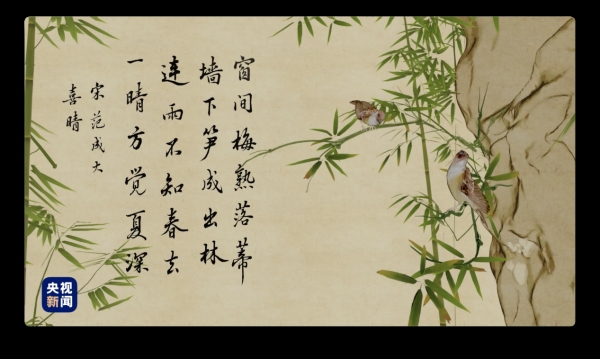 窗间梅熟落蒂
墙下笋成出林
连雨不知春去
一晴方觉夏深
宋 范成大
喜晴
央视
新闻